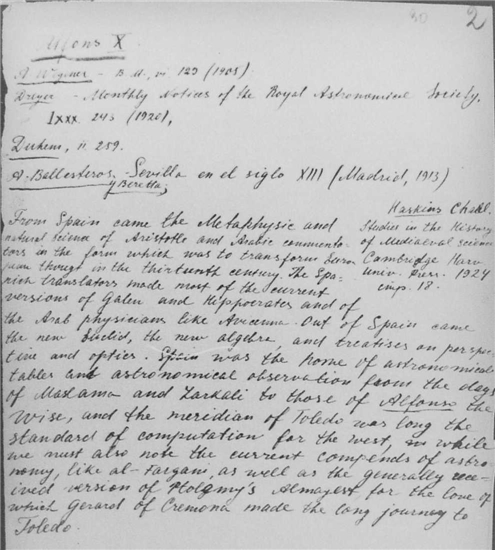 30 2
Alfons X
A. Wegener - B.M., vi. 129 (1905)
Dreyer - Monthly Notices of the Royal Astronomical Society,
lxxx. 243 (1920),
Duhem, ii. 259.
A. Ballesteros y Beretta, Sevilla en el siglo XIII (Madrid, 1913)
Haskins Ch.
Studies in the History
of Mediaeval Science
Cambridge Harv
univ. Press. 1924
стр. 18.
From Spain came the Metaphysic and
natural science of Aristotle and Arabic commenta-
tors in the form which was to transform Euro
pean though in the thirteenth century. The Spa-
nish translators made most of the current
versions of Galen and Hippocrates and of
the Arab physicians like Avicenna. Out of Spain came
the new Euclid, the new algebra, and treatises on perspec
tive and optics. Spain was the home of astronomical
tables and astronomical observation from the days
of Maslama and Zarkali to those of Alfonso the
Wise, and the meridian of Toledo was long the
standard of computation for the west, while
we must also note the current compends of astro
nomy, like al-Fargani, as well as the generally rece-
ived version of Ptolemy's Almagest for the love of
which Gerard of Cremona made the long journey to
Toledo.